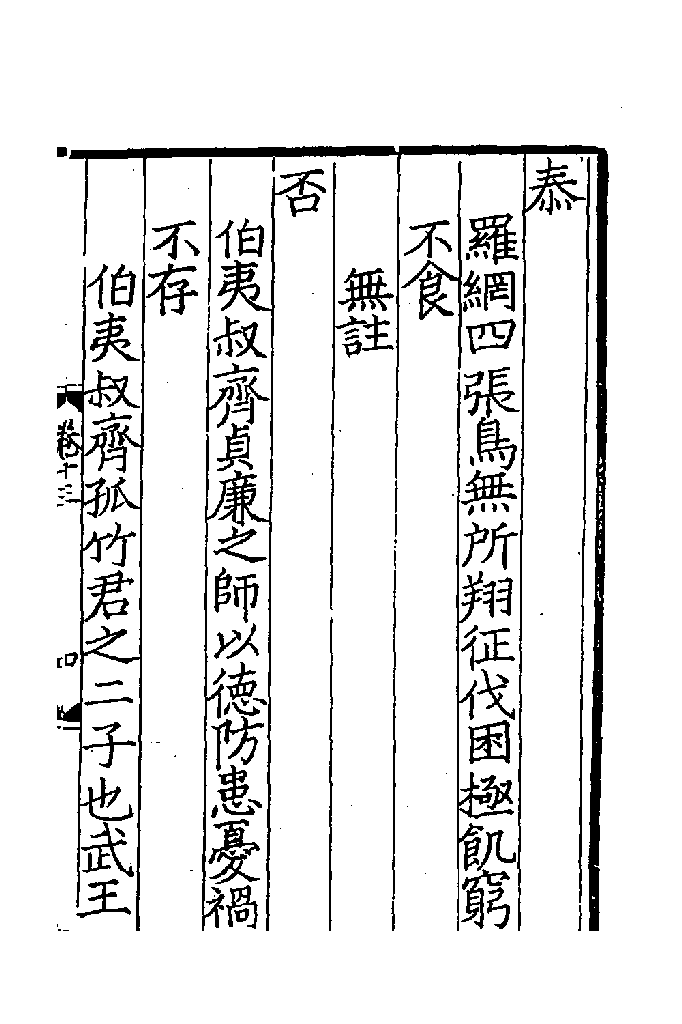 泰
羅網四張鳥無所翔征伐困極飢窮
不食
無註
否
伯夷叔齊貞廉之師以德防患憂禍
不存
伯夷叔齊孤竹君之二子也武王
卷十三